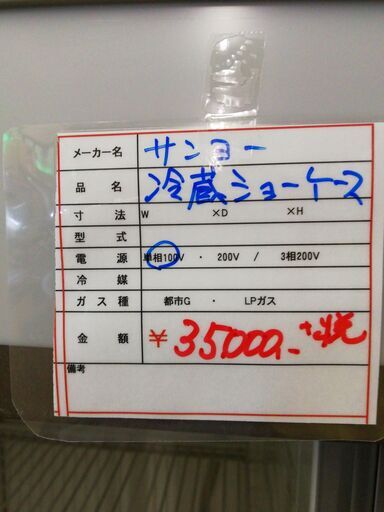 メーカー名 サンヨー
品 名 冷蔵ショーケース
寸 法 W ×D ×H
型 式
電 源 単相100V ・ 200V / 3相200V
冷 媒
ガ ス 種 都市G ・ LPガス
金 額 ¥35000.- +税
備考